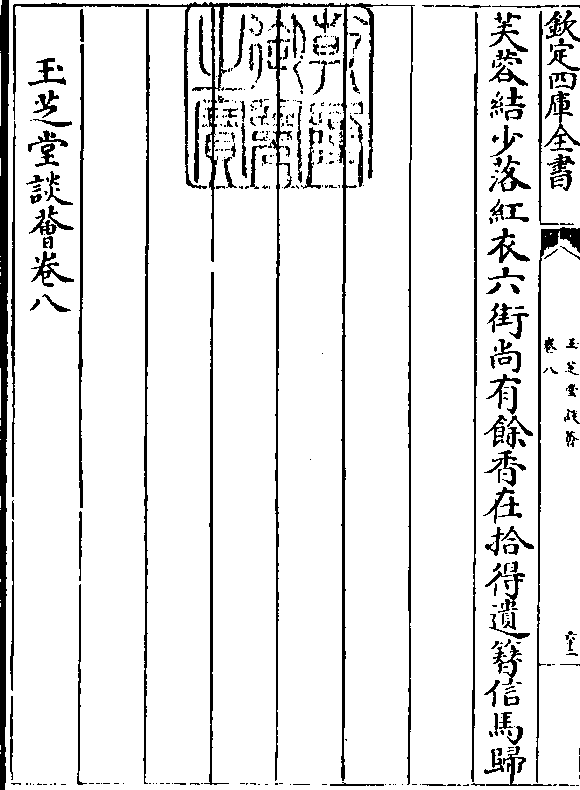 欽定四庫全書
玉芝堂談薈
卷八
六十二
芙蓉結少落紅衣六街尚有餘香在拾得遺簪信馬歸
乾隆御覽之寶
玉芝堂談薈卷八